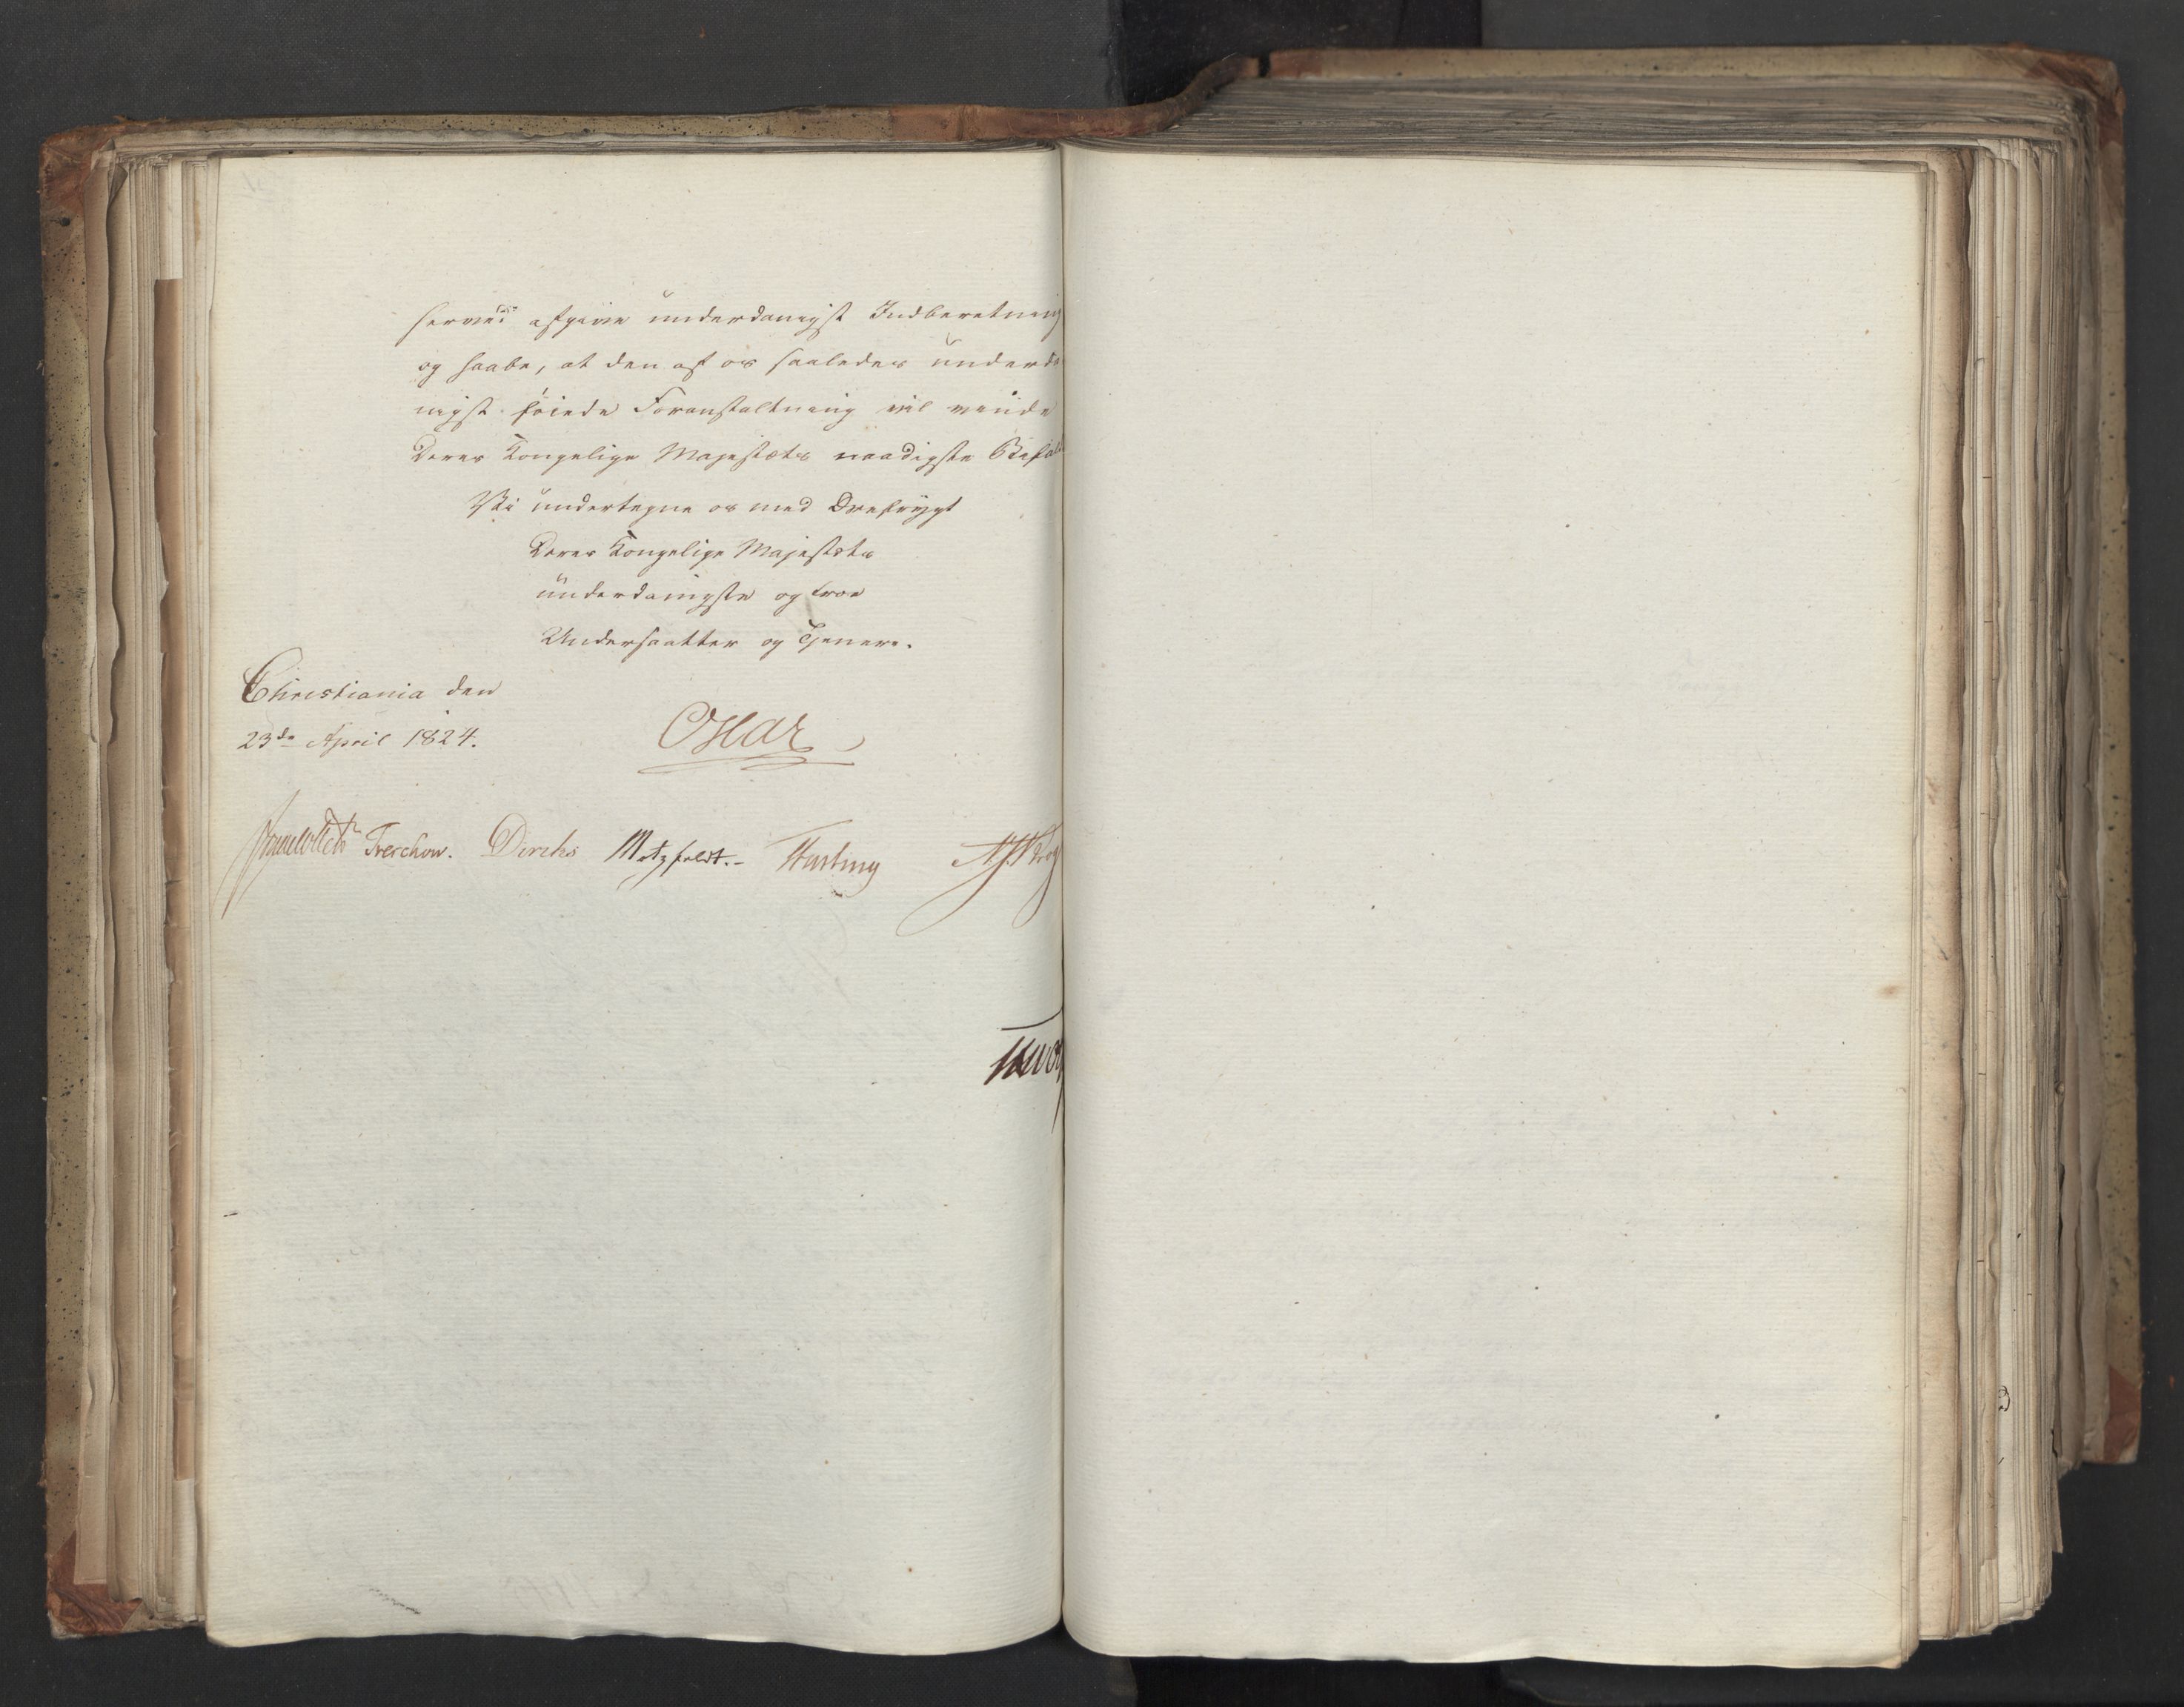 herved afgive underdanigst Indberetning
og haabe, at den af os saaledes underda
nigst føiede Foranstaltning vil vinde
Deres Kongelige Majestæts naadigste Bifald
Vi undertegne os med Ærefrygt
Deres Kongelige Majestæts
underdanigste og troe
Undersaatter og Tjenere.
Christiania den
23de April 1824.
Oscar
Treschow. Diriks Motzfeldt.- Fasting